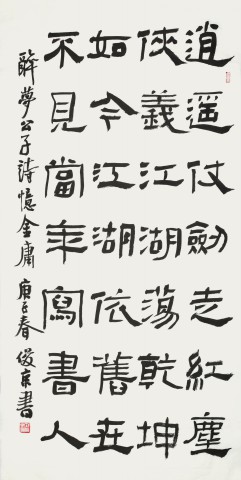 逍遙仗劍走紅塵
俠義江湖蕩乾坤
如今江湖依舊在
不見當年寫書人
醉夢公子詩憶金庸 庚子春 俊京書